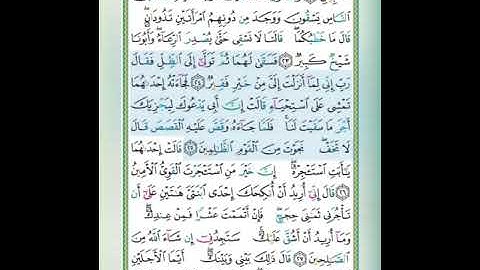 ٱلنَّاسِ يَسْقُونَ وَوَجَدَ مِن دُونِهِمُ ٱمْرَأَتَيْنِ تَذُودَانِ
قَالَ مَا خَطْبُكُمَا قَالَتَا لَا نَسْقِى حَتَّىٰ يُصْدِرَ ٱلرِّعَآءُ وَأَبُونَا
شَيْخٌ كَبِيرٌ ٢٣ فَسَقَىٰ لَهُمَا ثُمَّ تَوَلَّىٰٓ إِلَى ٱلظِّلِّ فَقَالَ
رَبِّ إِنِّى لِمَآ أَنزَلْتَ إِلَىَّ مِنْ خَيْرٍ فَقِيرٌ ٢٤ فَجَآءَتْهُ إِحْدَىٰهُمَا
تَمْشِى عَلَى ٱسْتِحْيَآءٍ قَالَتْ إِنَّ أَبِى يَدْعُوكَ لِيَجْزِيَكَ
أَجْرَ مَا سَقَيْتَ لَنَا فَلَمَّا جَآءَهُۥ وَقَصَّ عَلَيْهِ ٱلْقَصَصَ قَالَ
لَا تَخَفْ نَجَوْتَ مِنَ ٱلْقَوْمِ ٱلظَّٰلِمِينَ ٢٥ قَالَتْ إِحْدَىٰهُمَا
يَٰٓأَبَتِ ٱسْتَـْٔجِرْهُ إِنَّ خَيْرَ مَنِ ٱسْتَـْٔجَرْتَ ٱلْقَوِىُّ ٱلْأَمِينُ
٢٦ قَالَ إِنِّىٓ أُرِيدُ أَنْ أُنكِحَكَ إِحْدَى ٱبْنَتَىَّ هَٰتَيْنِ عَلَىٰٓ أَن
تَأْجُرَنِى ثَمَٰنِىَ حِجَجٍ فَإِنْ أَتْمَمْتَ عَشْرًا فَمِنْ عِندِكَ
وَمَآ أُرِيدُ أَنْ أَشُقَّ عَلَيْكَ سَتَجِدُنِىٓ إِن شَآءَ ٱللَّهُ مِنَ
ٱلصَّٰلِحِينَ ٢٧ قَالَ ذَٰلِكَ بَيْنِى وَبَيْنَكَ أَيَّمَا ٱلْأَجَلَيْنِ